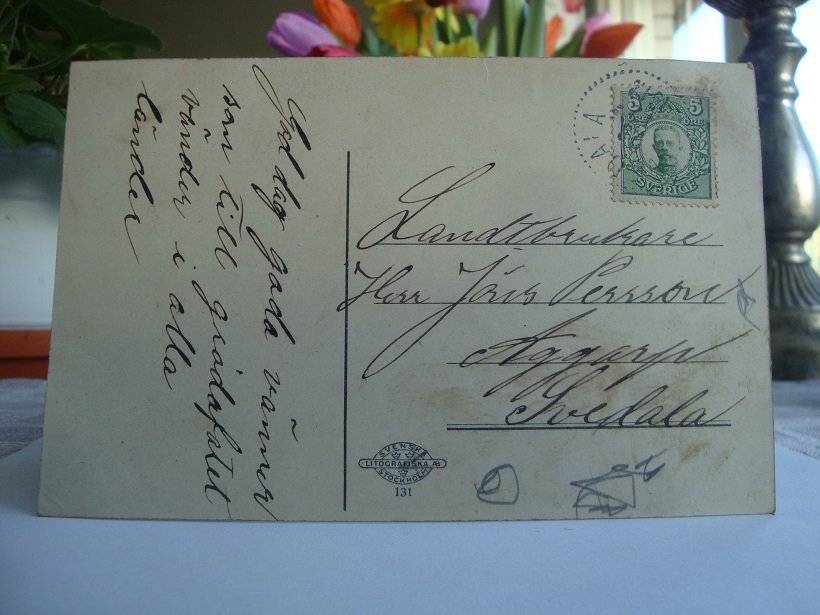 God dag goda vänner
som till grödafatet
vänder i alla
länder
5 5
ÖRE ÖRE
SVERIGE
Landtbrukare
Herr Jöns Persson
Aggarp
Svedala
SVENSKA
LITOGRAFISKA AB
STOCKHOLM
131